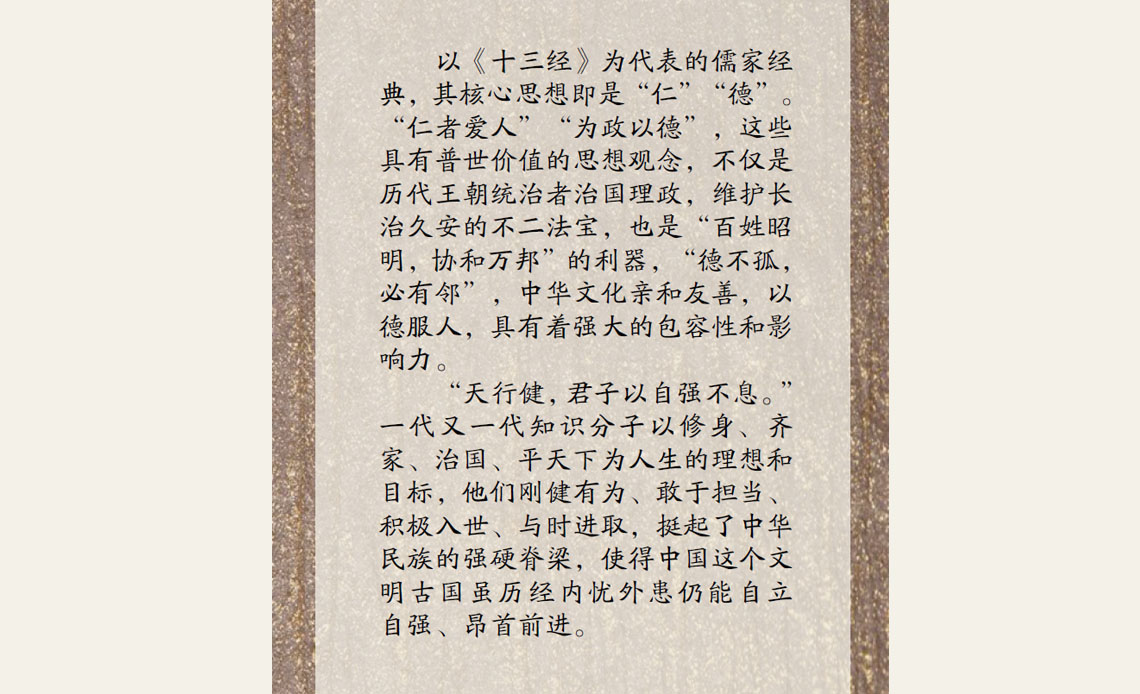 以《十三经》为代表的儒家经
典，其核心思想即是“仁”“德”。
“仁者爱人”“为政以德”，这些
具有普世价值的思想观念，不仅是
历代王朝统治者治国理政，维护长
治久安的不二法宝，也是“百姓昭
明，协和万邦”的利器，“德不孤，
必有邻”，中华文化亲和友善，以
德服人，具有着强大的包容性和影
响力。
“天行健，君子以自强不息。”
一代又一代知识分子以修身、齐
家、治国、平天下为人生的理想和
目标，他们刚健有为、敢于担当、
积极入世、与时进取，挺起了中华
民族的强硬脊梁，使得中国这个文
明古国虽历经内忧外患仍能自立
自强、昂首前进。